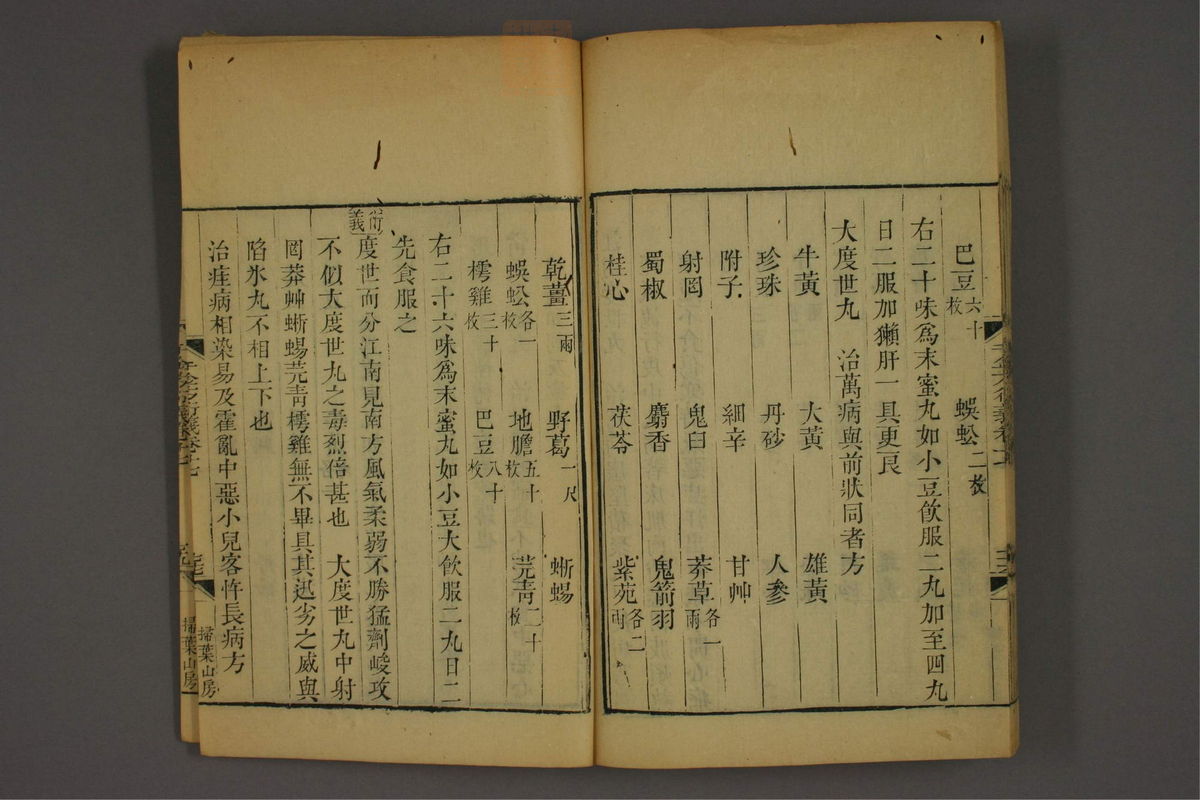 巴豆六十枚　蜈蚣二枚
右二十味爲末蜜丸如小豆飮服二丸加至四丸
日二服加獺肝一具更良
大度世丸　治萬病與前狀同者方
牛黃　大黃　雄黃
珍珠　丹砂　人參
附子　細辛　甘艸
射罔　鬼臼　莽草各一兩
蜀椒　麝香　鬼箭羽
桂心　茯苓　紫苑各二兩
乾薑三兩　野葛一尺　蜥蜴
蜈蚣各一枚　地膽五十枚　芫靑二十枚
樗雞三十枚　巴豆八十枚
右二十六味爲末蜜丸如小豆大飮服二丸日二
先食服之
衍義度世而分江南見南方風氣柔弱不勝猛劑峻攻
不似大度世丸之毒烈倍甚也　大度世丸中射
罔莽艸蜥蜴芫靑樗雞無不畢具其迅劣之威與
陷氷丸不相上下也
治疰病相染易及霍亂中惡小兒客忤長病方
掃葉山房
掃葉山房